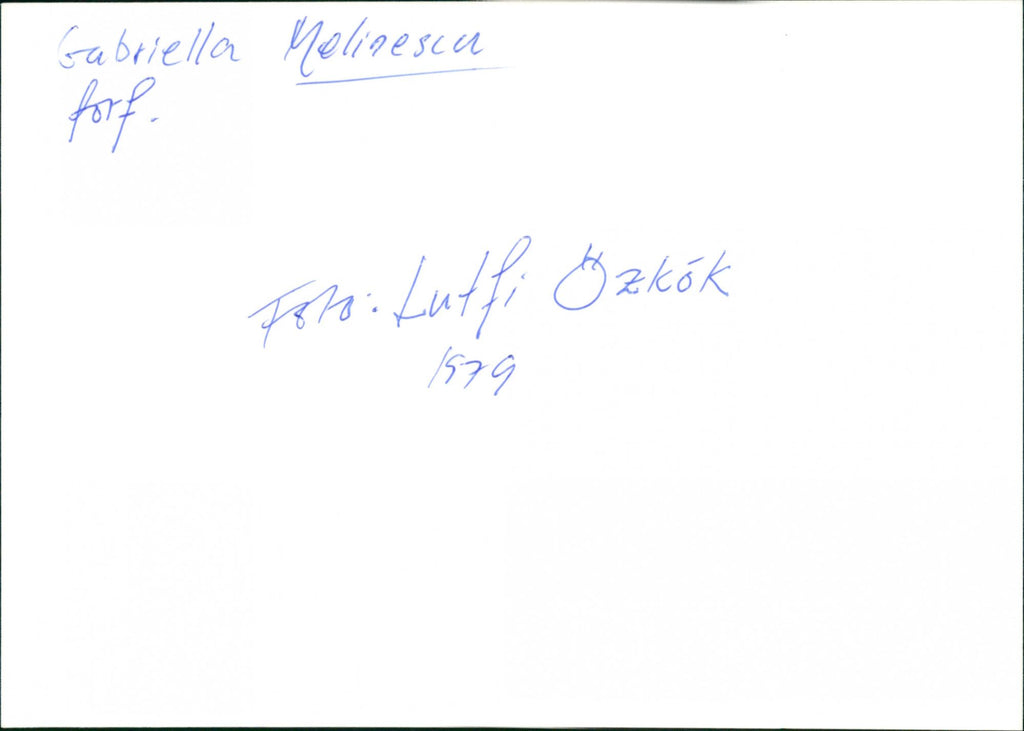 Gabriella Melinescu
förf.
Foto: Lutfi Özkök
1979